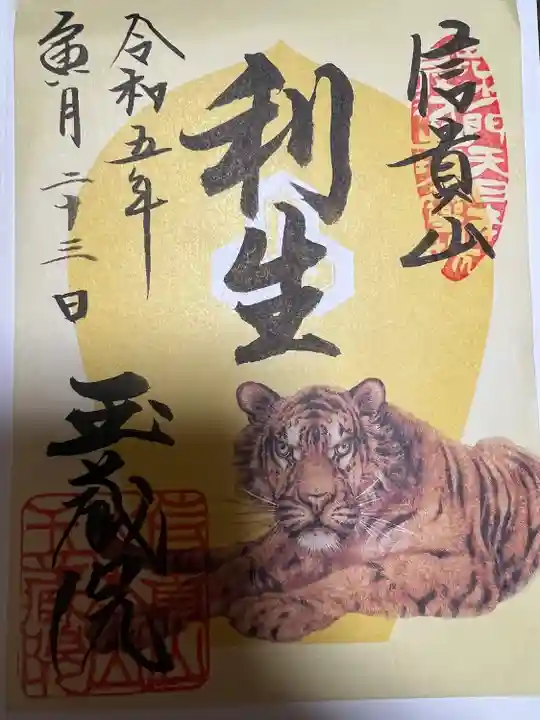 信貴山
利生
令和五年
寅月二十三日
玉蔵院